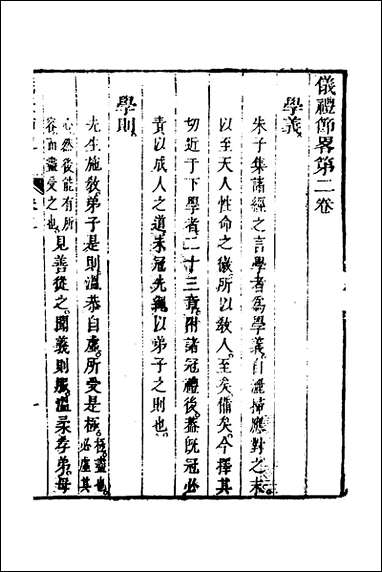 儀禮節畧第二卷
學義
朱子集諸經之言學者為學義自灑掃應對之末
以至天人性命之微所以敎人至矣備矣今擇其
切近于下學者二十三章附諸冠禮後蓋旣冠必
責以成人之道未冠先龜以弟子之則也
學則
先生施敎弟子是則溫恭自虛所受是極極盡也必虛其
心然後能有所容而盡受之也見善從之聞義則服溫柔孝弟母